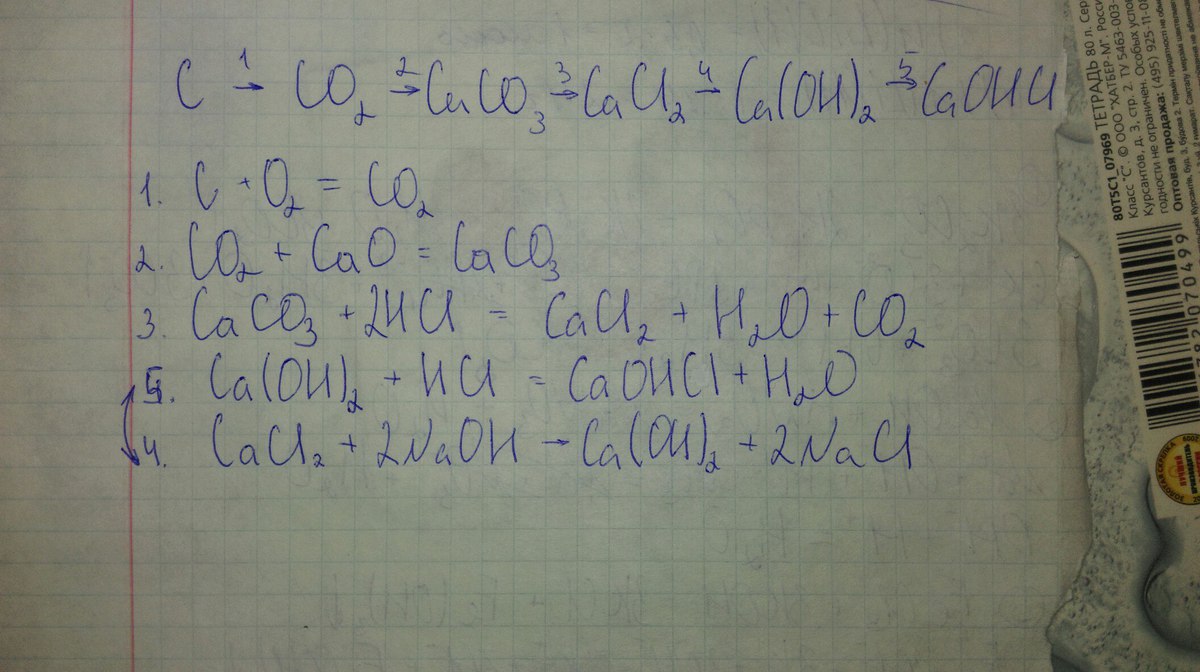 C 1→ CO₂ 2→ CaCO₃ 3→ CaCl₂ 4→ Ca(OH)₂ 5→ CaOHCl
1. C + O₂ = CO₂
2. CO₂ + CaO = CaCO₃
3. CaCO₃ + 2HCl = CaCl₂ + H₂O + CO₂
5. Ca(OH)₂ + HCl = CaOHCl + H₂O
4. CaCl₂ + 2NaOH → Ca(OH)₂ + 2NaCl
80Т5С1_07969 ТЕТРАДЬ 80 л. Сер
Класс "С". © ООО "ХАТБЕР-М". Росси
Курсантов, д. 3, стр. 2. ТУ 5463-003-
годности не ограничен. Особых услов
Оптовая продажа: (495) 925-11-08